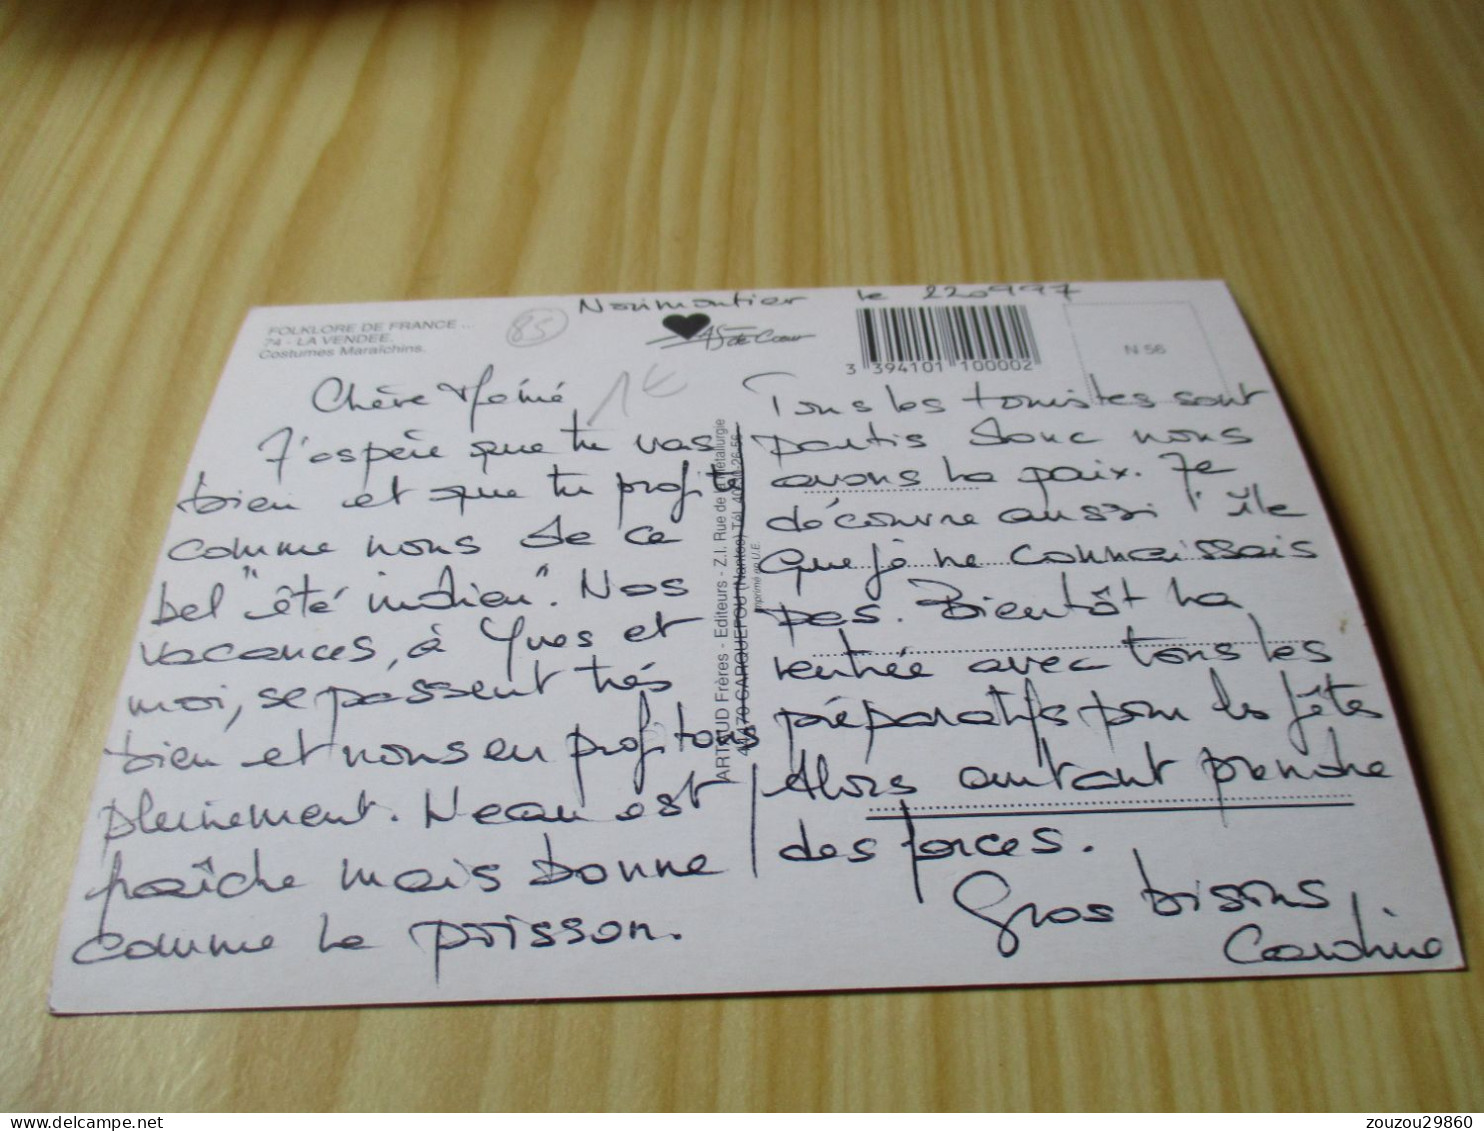 Noirmoutier le 220997
FOLKLORE DE FRANCE ...
74 - LA VENDEE.
Costumes Maraîchins.
85
As de Coeur
3 394101 100002
N 56
1€
Chère Mémé
J'espère que tu vas
bien et que tu profites
comme nous de ce
bel "été indien". Nos
vacances, à Yves et
moi, se passent très
bien et nous en profitons
pleinement. L'eau est
fraîche mais bonne
comme le poisson.
ARTAUD Frères - Editeurs - Z.I. Rue de la Métallurgie
44470 CARQUEFOU (Nantes) Tél.
Imprimé en U.E.
Tous les touristes sont
partis donc nous
avons la paix. Je
découvre aussi l'île
que je ne connaissais
pas. Bientôt la
rentrée avec tous les
préparatifs pour les fêtes
Alors autant prendre
des forces.
Gros bisous,
Caroline
zouzou29860